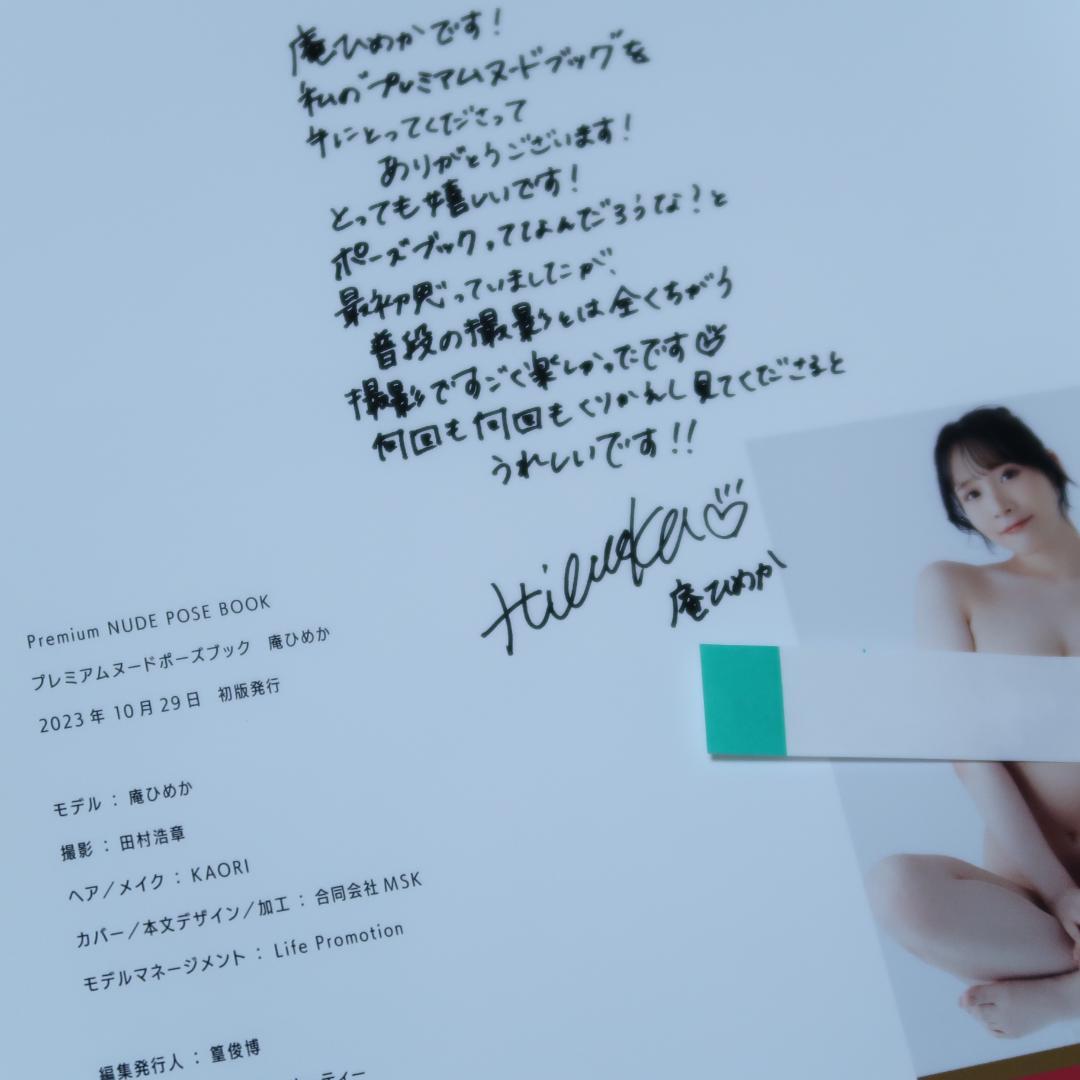 庵ひめかです!
私のプレミアムヌードブックを
手にとってくださって
ありがとうございます!
とっても嬉しいです!
ポーズブックってなんだろうな?と
最初思っていましたが、
普段の撮影とは全くちがう
撮影ですごく楽しかったです♡
何回も何回もくりかえし見てくださると
うれしいです!!
Himeka♡
庵ひめか
Premium NUDE POSE BOOK
プレミアムヌードポーズブック 庵ひめか
2023年10月29日 初版発行
モデル:庵ひめか
撮影:田村浩章
ヘア/メイク:KAORI
カバー/本文デザイン/加工:合同会社MSK
モデルマネージメント:Life Promotion
編集発行人:篁俊博